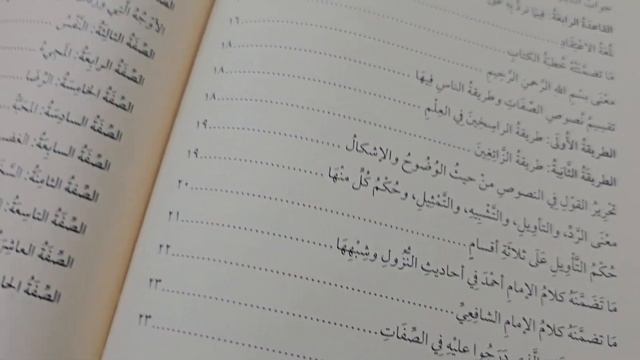 القاعدة الرابعة: فيما نرد به على
لمعة الاعتقاد
ما تضمنته خطبة الكتاب ١٦
معنى بسم الله الرحمن الرحيم ١٨
تقسيم نصوص الصفات وطريقة الناس فيها ١٨
الطريقة الأولى: طريقة الراسخين في العلم ١٨
الطريقة الثانية: طريقة الزائغين ١٩
تحرير القول في النصوص من حيث الوضوح والإشكال ١٩
معنى الرد، والتأويل، والتشبيه، والتمثيل، وحكم كل منها ٢٠
حكم التأويل على ثلاثة أقسام ٢١
ما تضمنه كلام الإمام أحمد في أحاديث النزول وشبهها ٢٢
ما تضمنه كلام الإمام الشافعي ٢٣
درجوا عليه في الصفات ٢٣
الصفة الثالثة: النفس
الصفة الرابعة: المجيء
الصفة الخامسة: الرضا
الصفة السادسة: المحبة
الصفة السابعة: الغضب
الصفة الثامنة:
الصفة التاسعة:
الصفة العاشرة